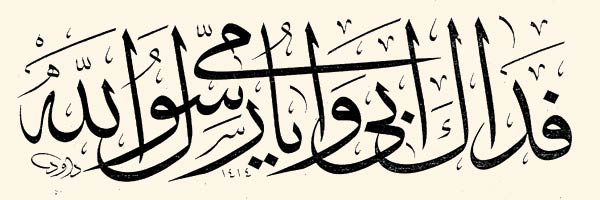 فداك ابي وامي يا رسول الله
داود
١٤١٤